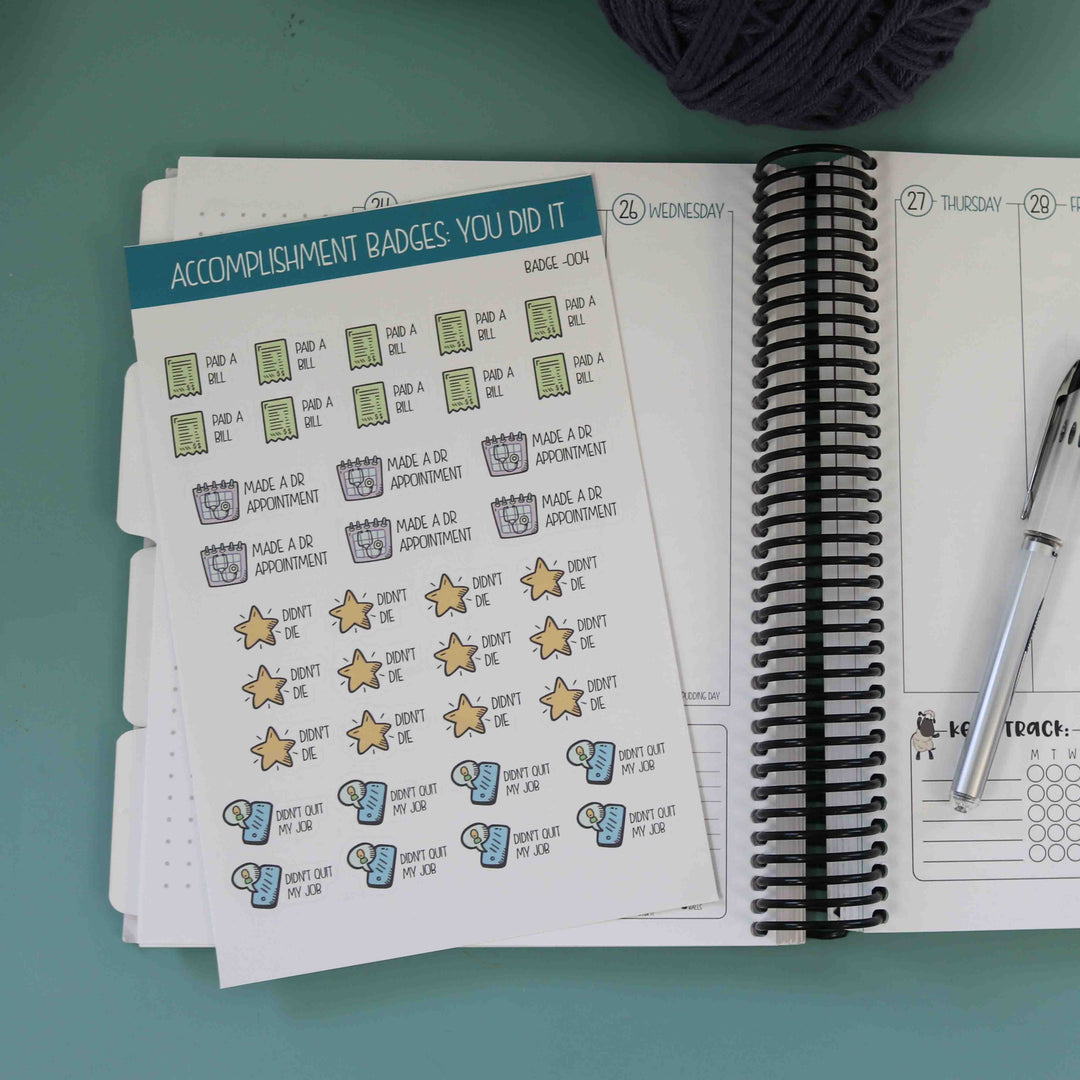 24
26 WEDNESDAY
27 THURSDAY
28
ACCOMPLISHMENT BADGES: YOU DID IT
BADGE -004
PAID A BILL
PAID A BILL
PAID A BILL
PAID A BILL
PAID A BILL
PAID A BILL
PAID A BILL
PAID A BILL
PAID A BILL
PAID A BILL
MADE A DR APPOINTMENT
MADE A DR APPOINTMENT
MADE A DR APPOINTMENT
MADE A DR APPOINTMENT
MADE A DR APPOINTMENT
MADE A DR APPOINTMENT
DIDN'T DIE
DIDN'T DIE
DIDN'T DIE
DIDN'T DIE
DIDN'T DIE
DIDN'T DIE
DIDN'T DIE
DIDN'T DIE
DIDN'T DIE
DIDN'T DIE
DIDN'T DIE
DIDN'T DIE
DIDN'T QUIT MY JOB
DIDN'T QUIT MY JOB
DIDN'T QUIT MY JOB
DIDN'T QUIT MY JOB
DIDN'T QUIT MY JOB
DIDN'T QUIT MY JOB
DIDN'T QUIT MY JOB
DIDN'T QUIT MY JOB
PUDDING DAY
TRACK:
M T W